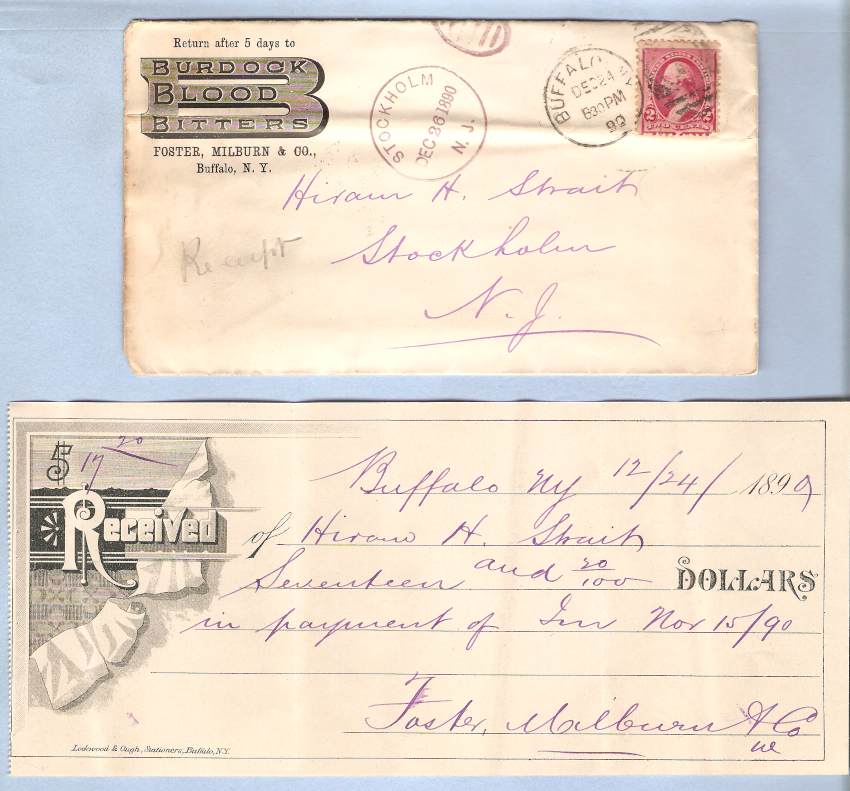 Return after 5 days to
BURDOCK
BLOOD
BITTERS
FOSTER, MILBURN & CO.,
Buffalo, N. Y.
STOCKHOLM
DEC 26 1890
N. J.
BUFFALO, N.Y.
DEC 24
830 PM
90
2 2
TWO CENTS
Hiram H. Strait
Stockholm
N. J.
Receipt
$ 17 20
Buffalo NY 12/24/ 1890
Received of Hiram H. Strait
Seventeen and 20/100 DOLLARS
in payment of Inv Nov 15/90
Foster, Milburn & Co
Lockwood & Ough, Stationers, Buffalo, N.Y.